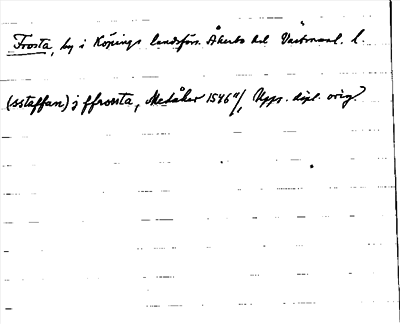 Frosta, by i Köpings landsförs. Åkerbo hd Västmanl. l.
(sstaffan) j ffrossta, Medåker 1546 4/1 Upps. dipl. orig.